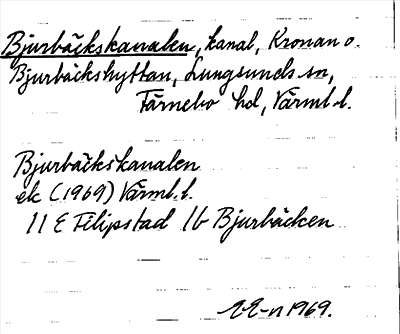 Bjurbäckskanalen, kanal, Kronan o.
Bjurbäckshyttan, Lungsunds sn,
Färnebo hd, Värml. l.
Bjurbäckskanalen
ek (1969) Värml. l.
11 E Filipstad 1b Bjurbäcken
1969.